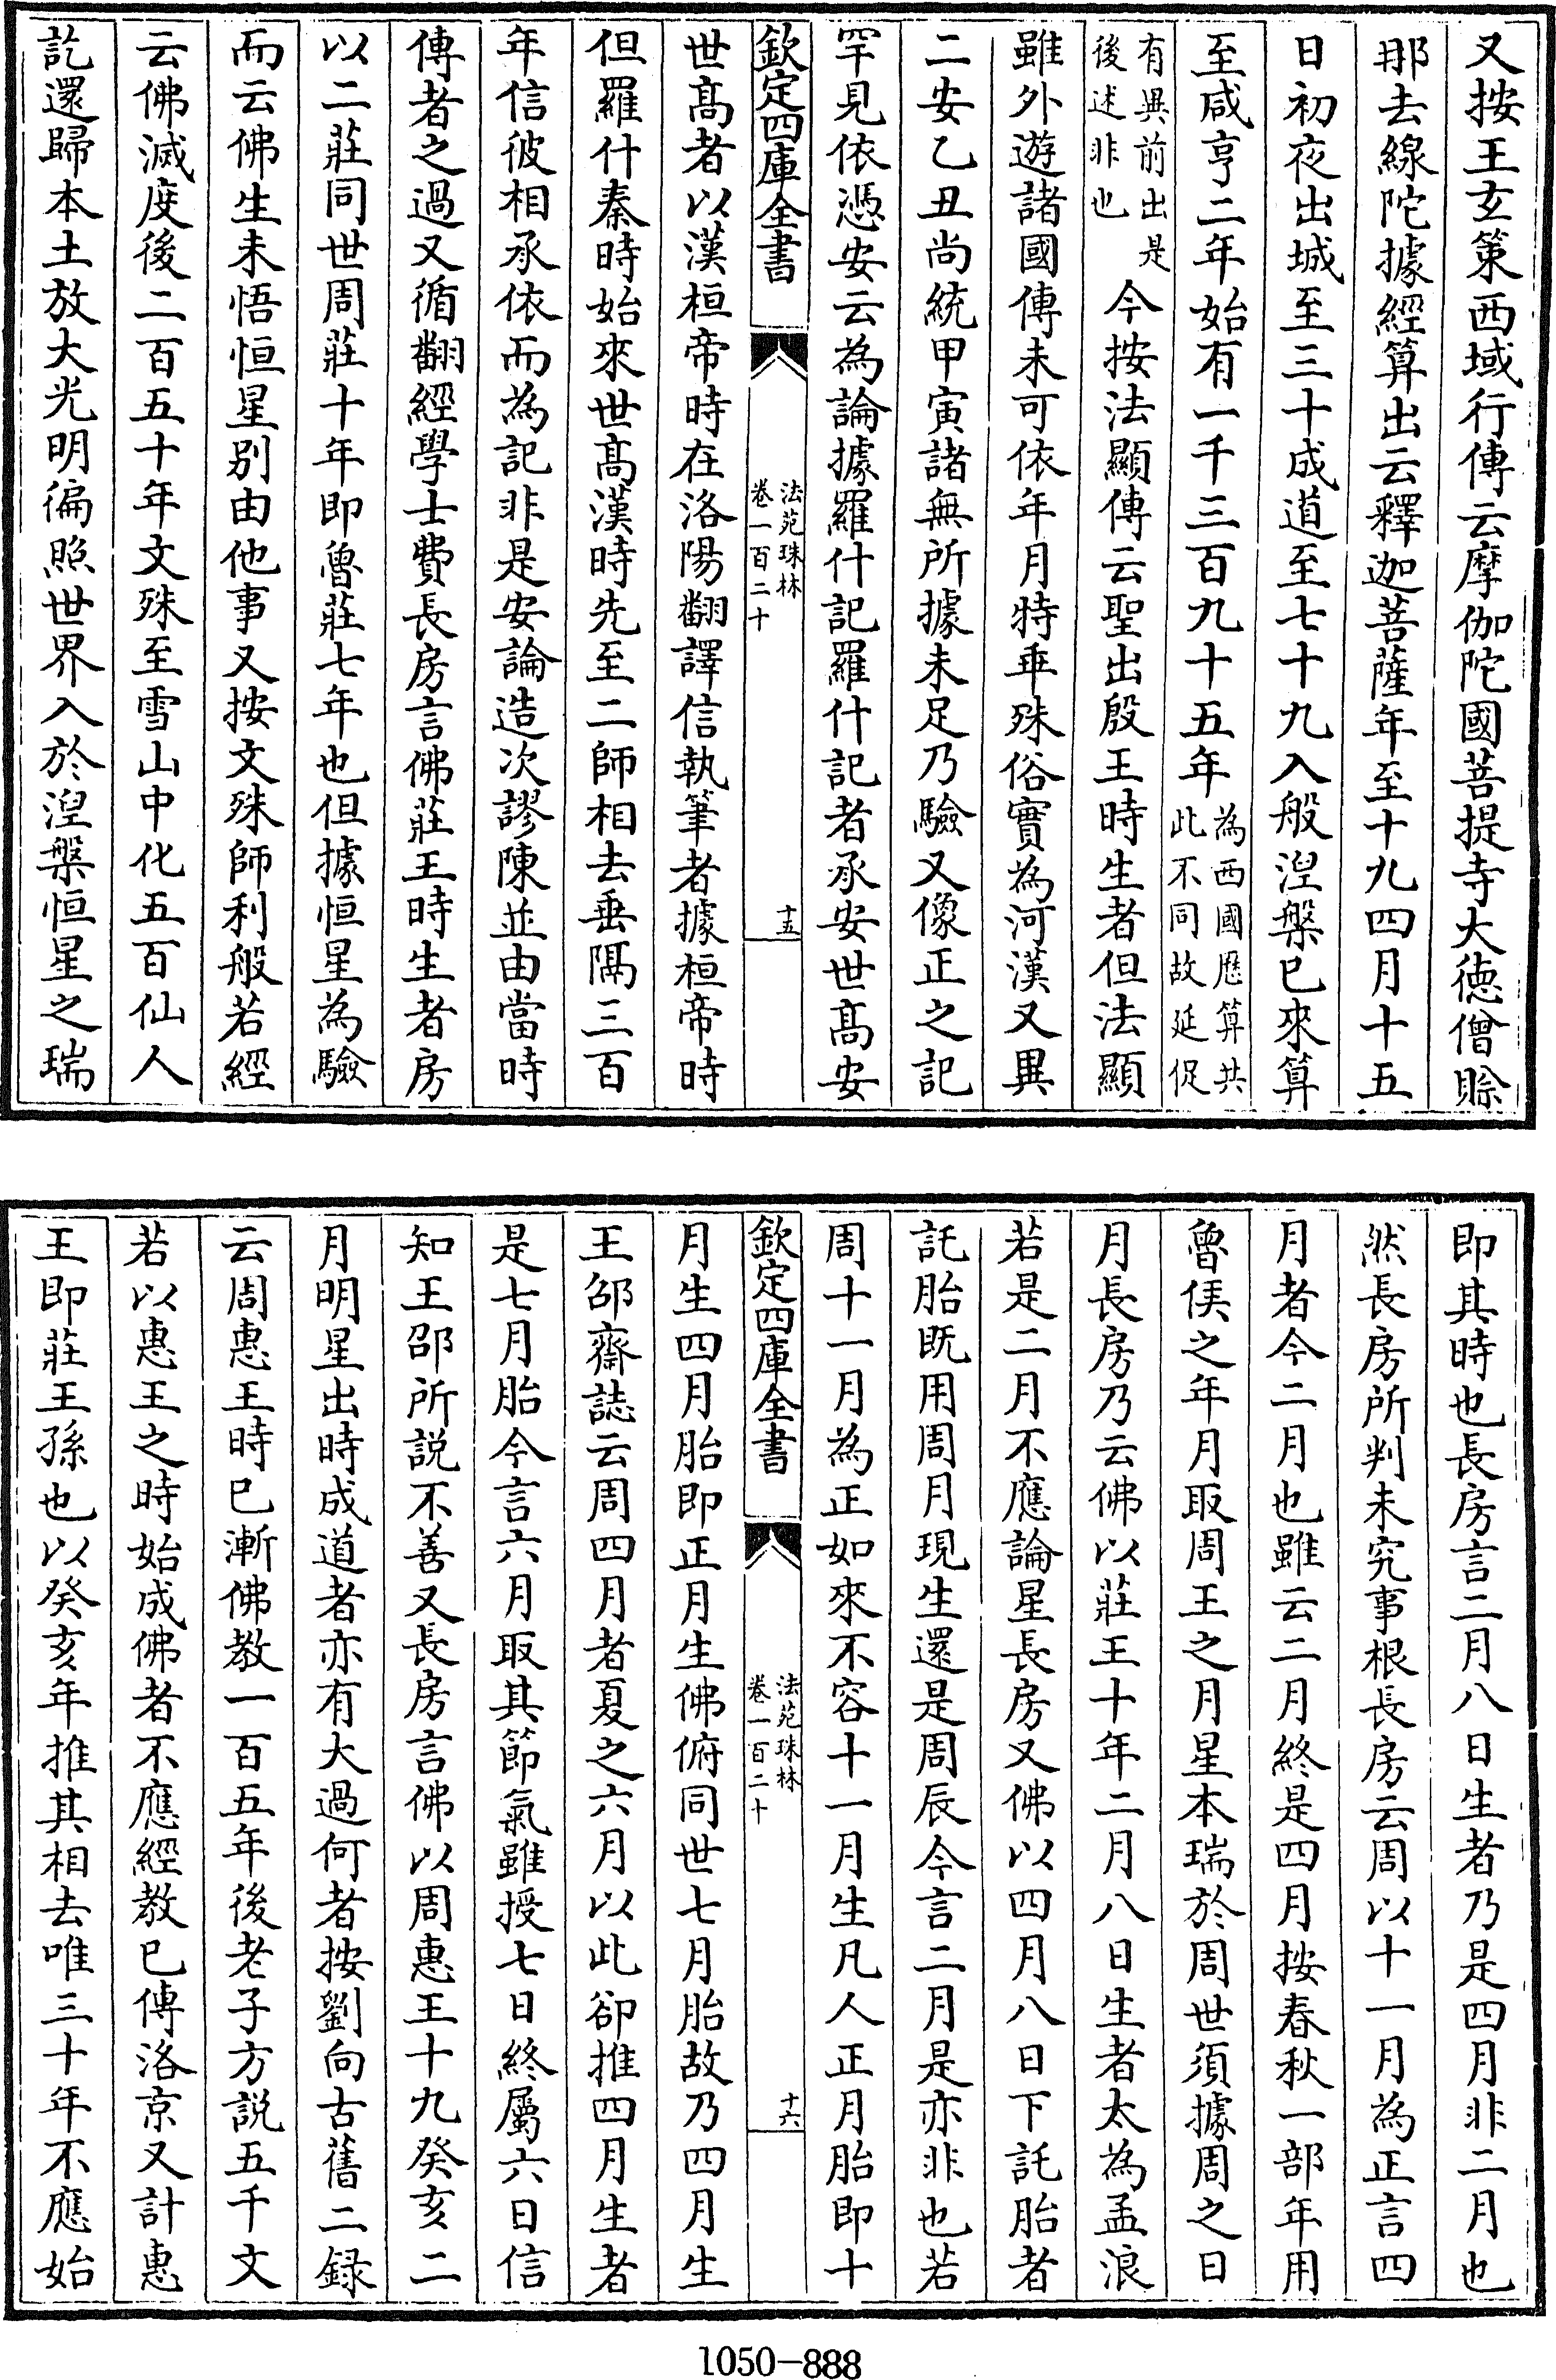 又按王玄策西域行傳云摩伽陀國菩提寺大徳僧賖
那去線陀據經算出云釋迦菩薩年至十九四月十五
日初夜出城至三十成道至七十九入般涅槃已來算
至咸亨二年始有一千三百九十五年為西國厯算共此不同故延促
有異前出是後述非也今按法顯傳云聖出殷王時生者但法顯
雖外遊諸國傳未可依年月特乖殊俗實為河漢又異
二安乙丑尚統甲寅諸無所據未足乃驗又像正之記
罕見依憑安云為論據羅什記羅什記者承安世髙安
欽定四庫全書
法苑珠林
卷一百二十
十五
世髙者以漢桓帝時在洛陽翻譯信執筆者據桓帝時
但羅什秦時始來世髙漢時先至二師相去垂隔三百
年信彼相承依而為記非是安論造次謬陳並由當時
傳者之過又循翻經學士費長房言佛莊王時生者房
以二莊同世周莊十年即魯莊七年也但據恒星為驗
而云佛生未悟恒星别由他事又按文殊師利般若經
云佛滅度後二百五十年文殊至雪山中化五百仙人
訖還歸本土放大光明徧照世界入於涅槃恒星之瑞
即其時也長房言二月八日生者乃是四月非二月也
然長房所判未究事根長房云周以十一月為正言四
月者今二月也雖云二月終是四月按春秋一部年用
魯侯之年月取周王之月星本瑞於周世須據周之日
月長房乃云佛以莊王十年二月八日生者太為孟浪
若是二月不應論星長房又佛以四月八日下託胎者
託胎既用周月現生還是周辰今言二月是亦非也若
周十一月為正如來不容十一月生凡人正月胎即十
欽定四庫全書
法苑珠林
卷一百二十
十六
月生四月胎即正月生佛俯同世七月胎故乃四月生
王邵齋誌云周四月者夏之六月以此卻推四月生者
是七月胎今言六月取其節氣雖授七日終屬六日信
知王邵所説不善又長房言佛以周惠王十九癸亥二
月明星出時成道者亦有大過何者按劉向古舊二録
云周惠王時已漸佛教一百五年後老子方説五千文
若以惠王之時始成佛者不應經教已傳洛京又計惠
王即莊王孫也以癸亥年推其相去唯三十年不應始
1050-888